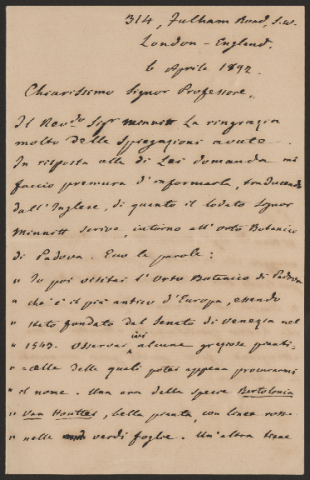 314, Fulham Road, S.W.
London - England.
6 Aprile 1892.
Chiarissimo Signor Professore.
Il Rev.do Sigr Minnitt La ringrazia
molto delle Spiegazioni avute.
In risposta alla di Lei domanda mi
faccio premura d'informarla, traducendo
dall'Inglese, di quanto il lodato Signor
Minnitt scrive, intorno all'Orto Botanico
di Padova. Ecco le parole:
" Io poi visitai l'Orto Botanico di Padova
" che è il più antico d'Europa, essendo
" stato fondato dal Senato di Venezia nel
" 1543. Osservai ivi alcune graziose pianti-
" celle delle quali potei appena procurarmi
" il nome. Una era della specie Bertolonia
" Van Houttei, bella pianta, con linee rosse
" nelle verdi foglie. Un'altra